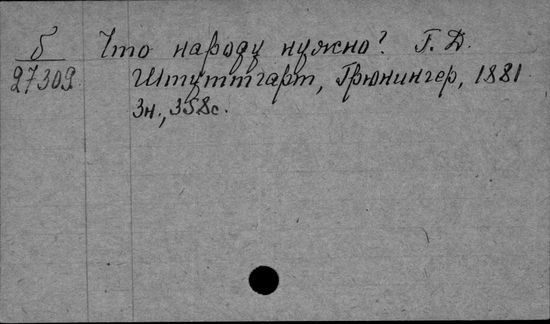 б
27309
Что народу нужно? Г. Д.
Штуттгарт, Грюнингер, 1881
3н., 358с.